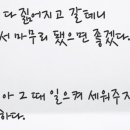 다 짊어지고 갈테니
서 마무리 됐으면 좋겠다.
아 그 때 일으켜 세워주지
하다.